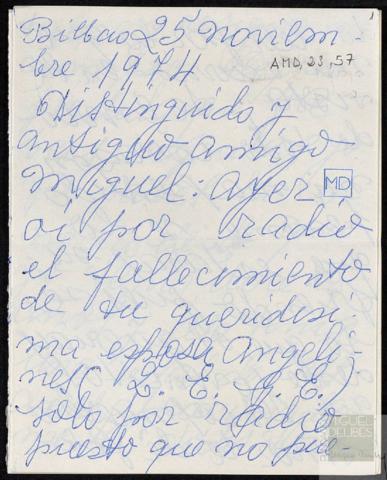 Bilbao 25 noviem-
bre 1974
AMD, 23, 57
Distinguido y
antiguo amigo
Miguel: ayer
MD
oí por radio
el fallecimiento
de tu queridísi-
ma esposa Angeli-
nes (Q. E. G. E.)
solo por radio
puesto que no pue-
MIGUEL
DELIBES